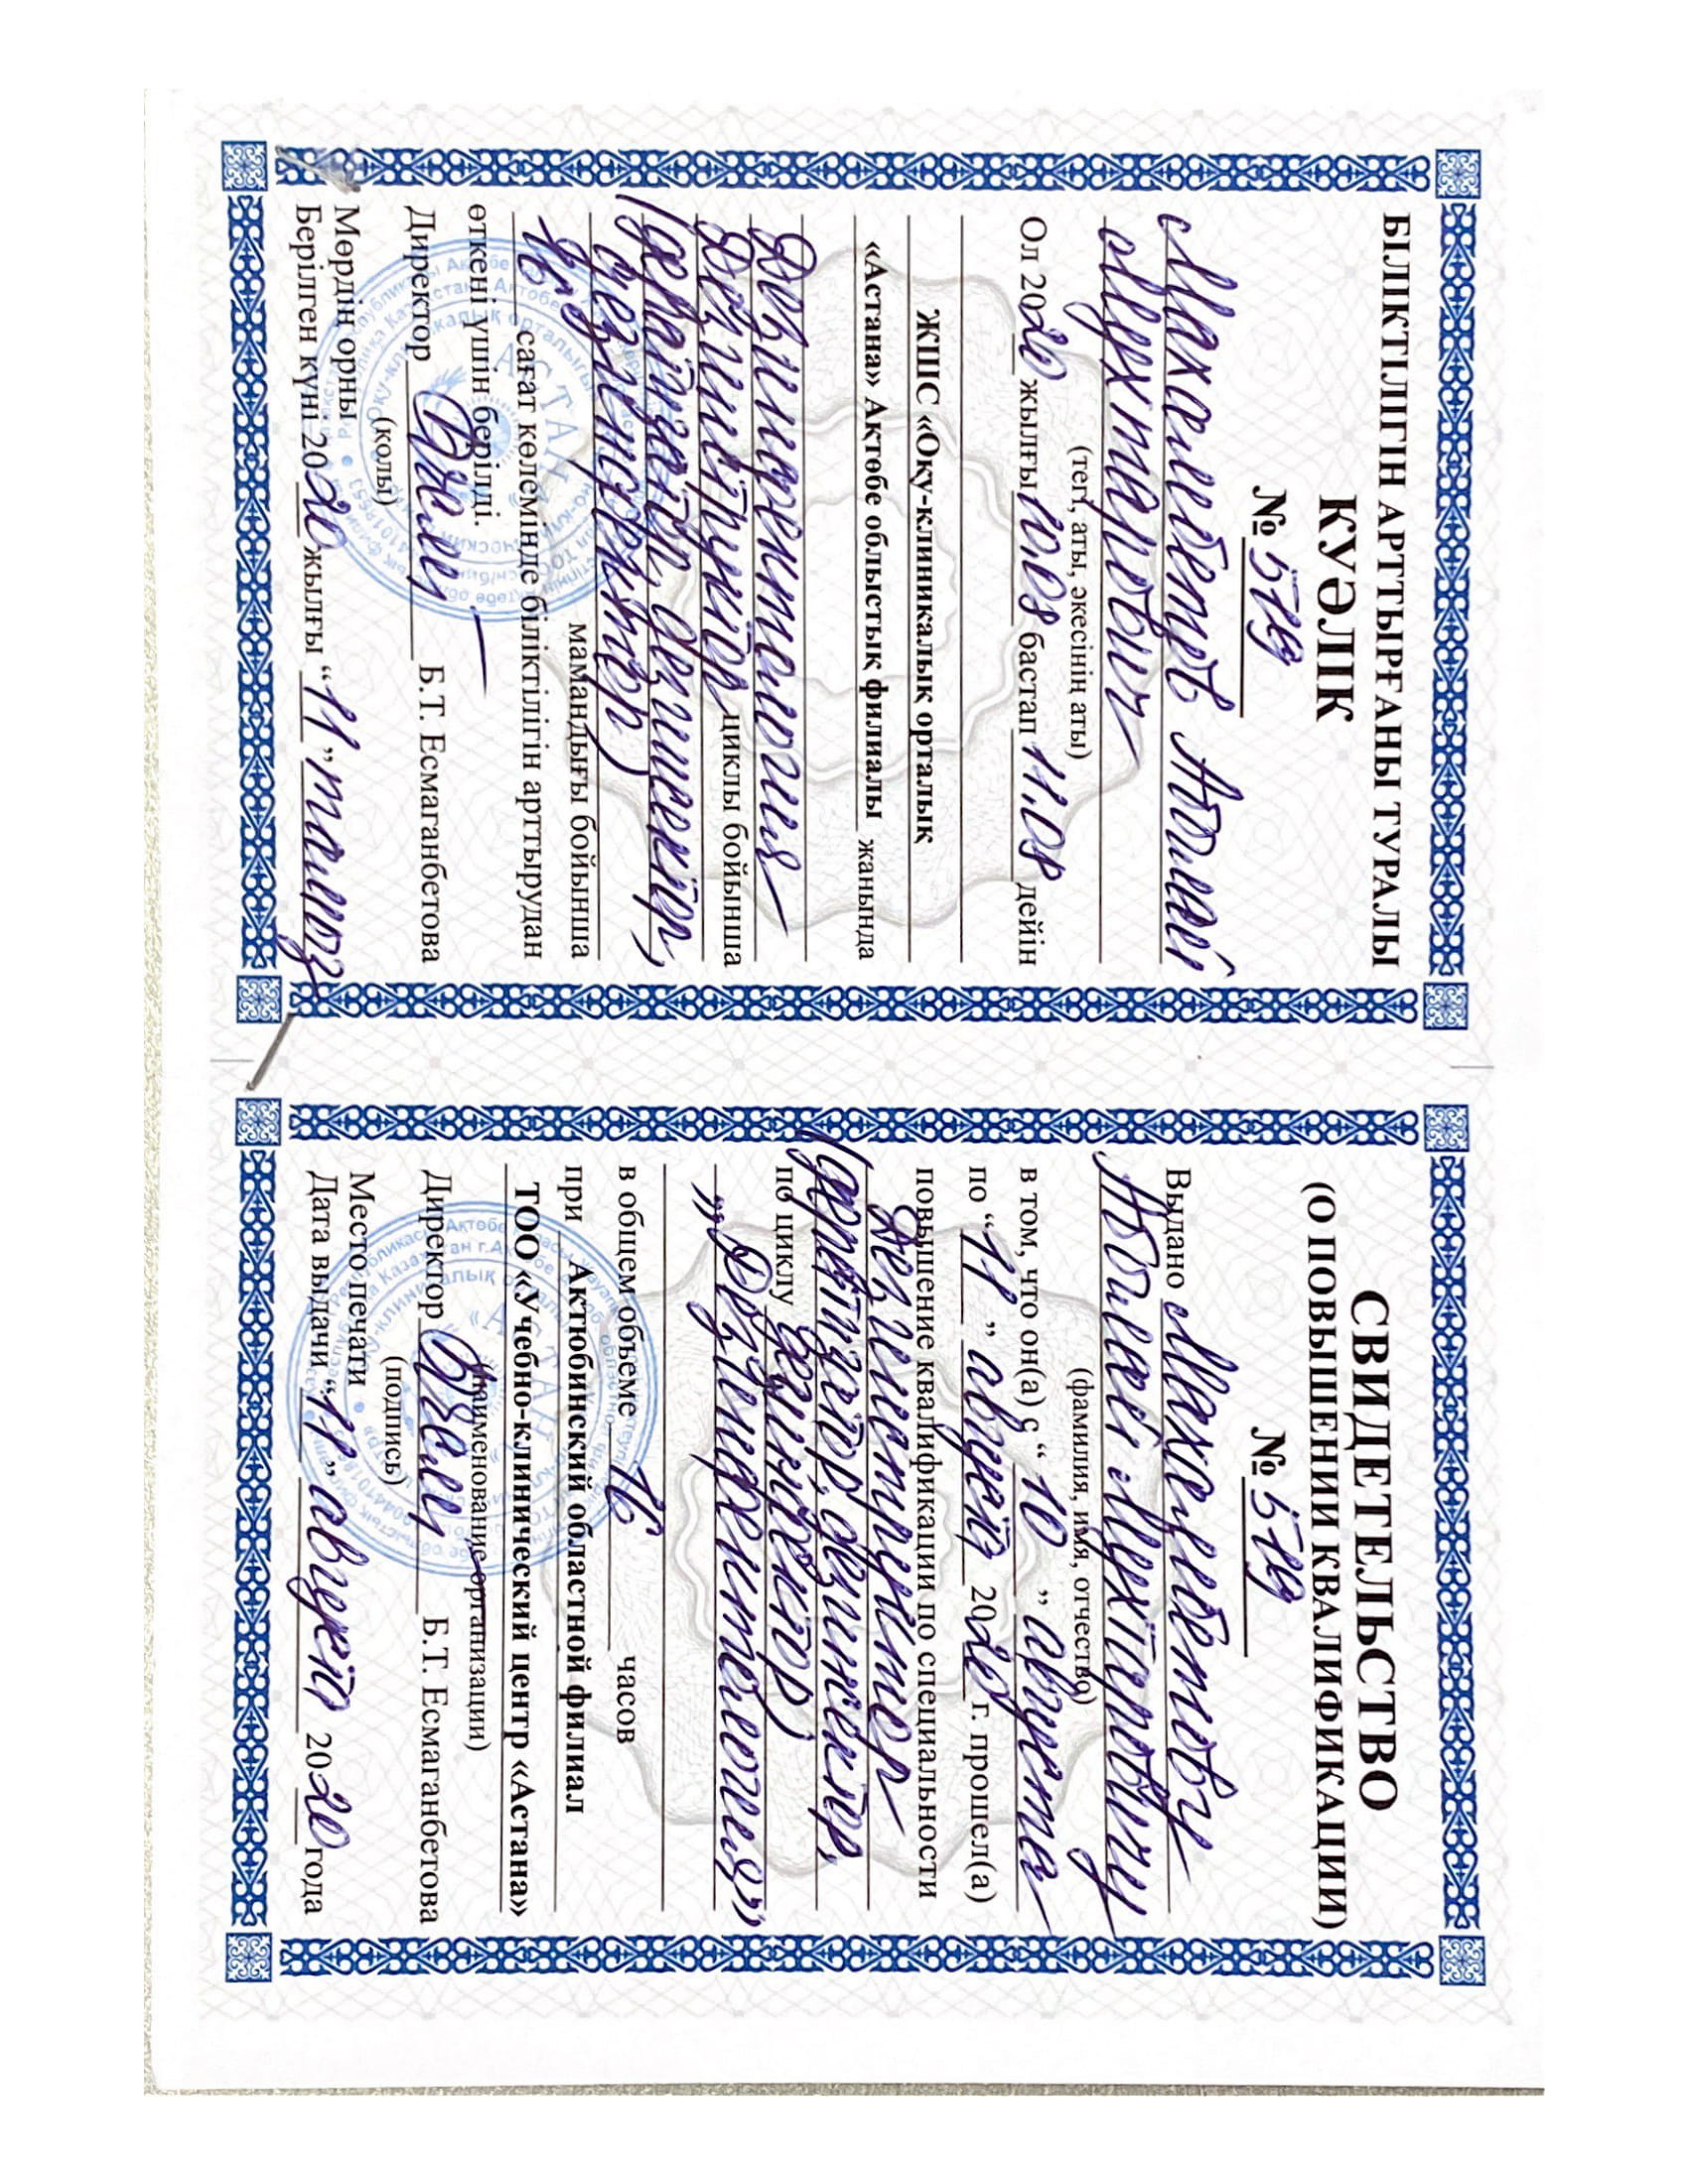 БІЛІКТІЛІГІН АРТТЫРҒАНЫ ТУРАЛЫ
КУӘЛІК
№ 579
Махамбетов Абылай
Мухтарович
(тегі, аты, әкесінің аты)
Ол 2020 жылғы 10.08 бастап 11.08 дейін
ЖШС «Оқу-клиникалық орталық
«Астана» Ақтөбе облыстық филиалы жанында
Дезинфектология
Дезинструктор циклы бойынша
дезинсектор,
мамандығы бойынша
16 сағат көлемінде біліктілігін арттырудан
өткені үшін берілді.
Директор Б.Т. Есмаганбетова
(қолы)
Мөрдің орны
Берілген күні 2020 жылғы “11” тамыз
СВИДЕТЕЛЬСТВО
(О ПОВЫШЕНИИ КВАЛИФИКАЦИИ)
№ 579
Выдано Махамбетову
Абылай Мухтаровичу
(фамилия, имя, отчество)
в том, что он(а) с “10” августа
по “11” августа 2020 г. прошел(а)
повышение квалификации по специальности
Дезинструктор
(дератизатор, дезинсектор,
по циклу дезинфектор)
„Дезинфектология"
в общем объеме 16 часов
при Актюбинский областной филиал
ТОО «Учебно-клинический центр «Астана»
(наименование организации)
Директор Б.Т. Есмаганбетова
(подпись)
Место печати
Дата выдачи “11” августа 2020 года